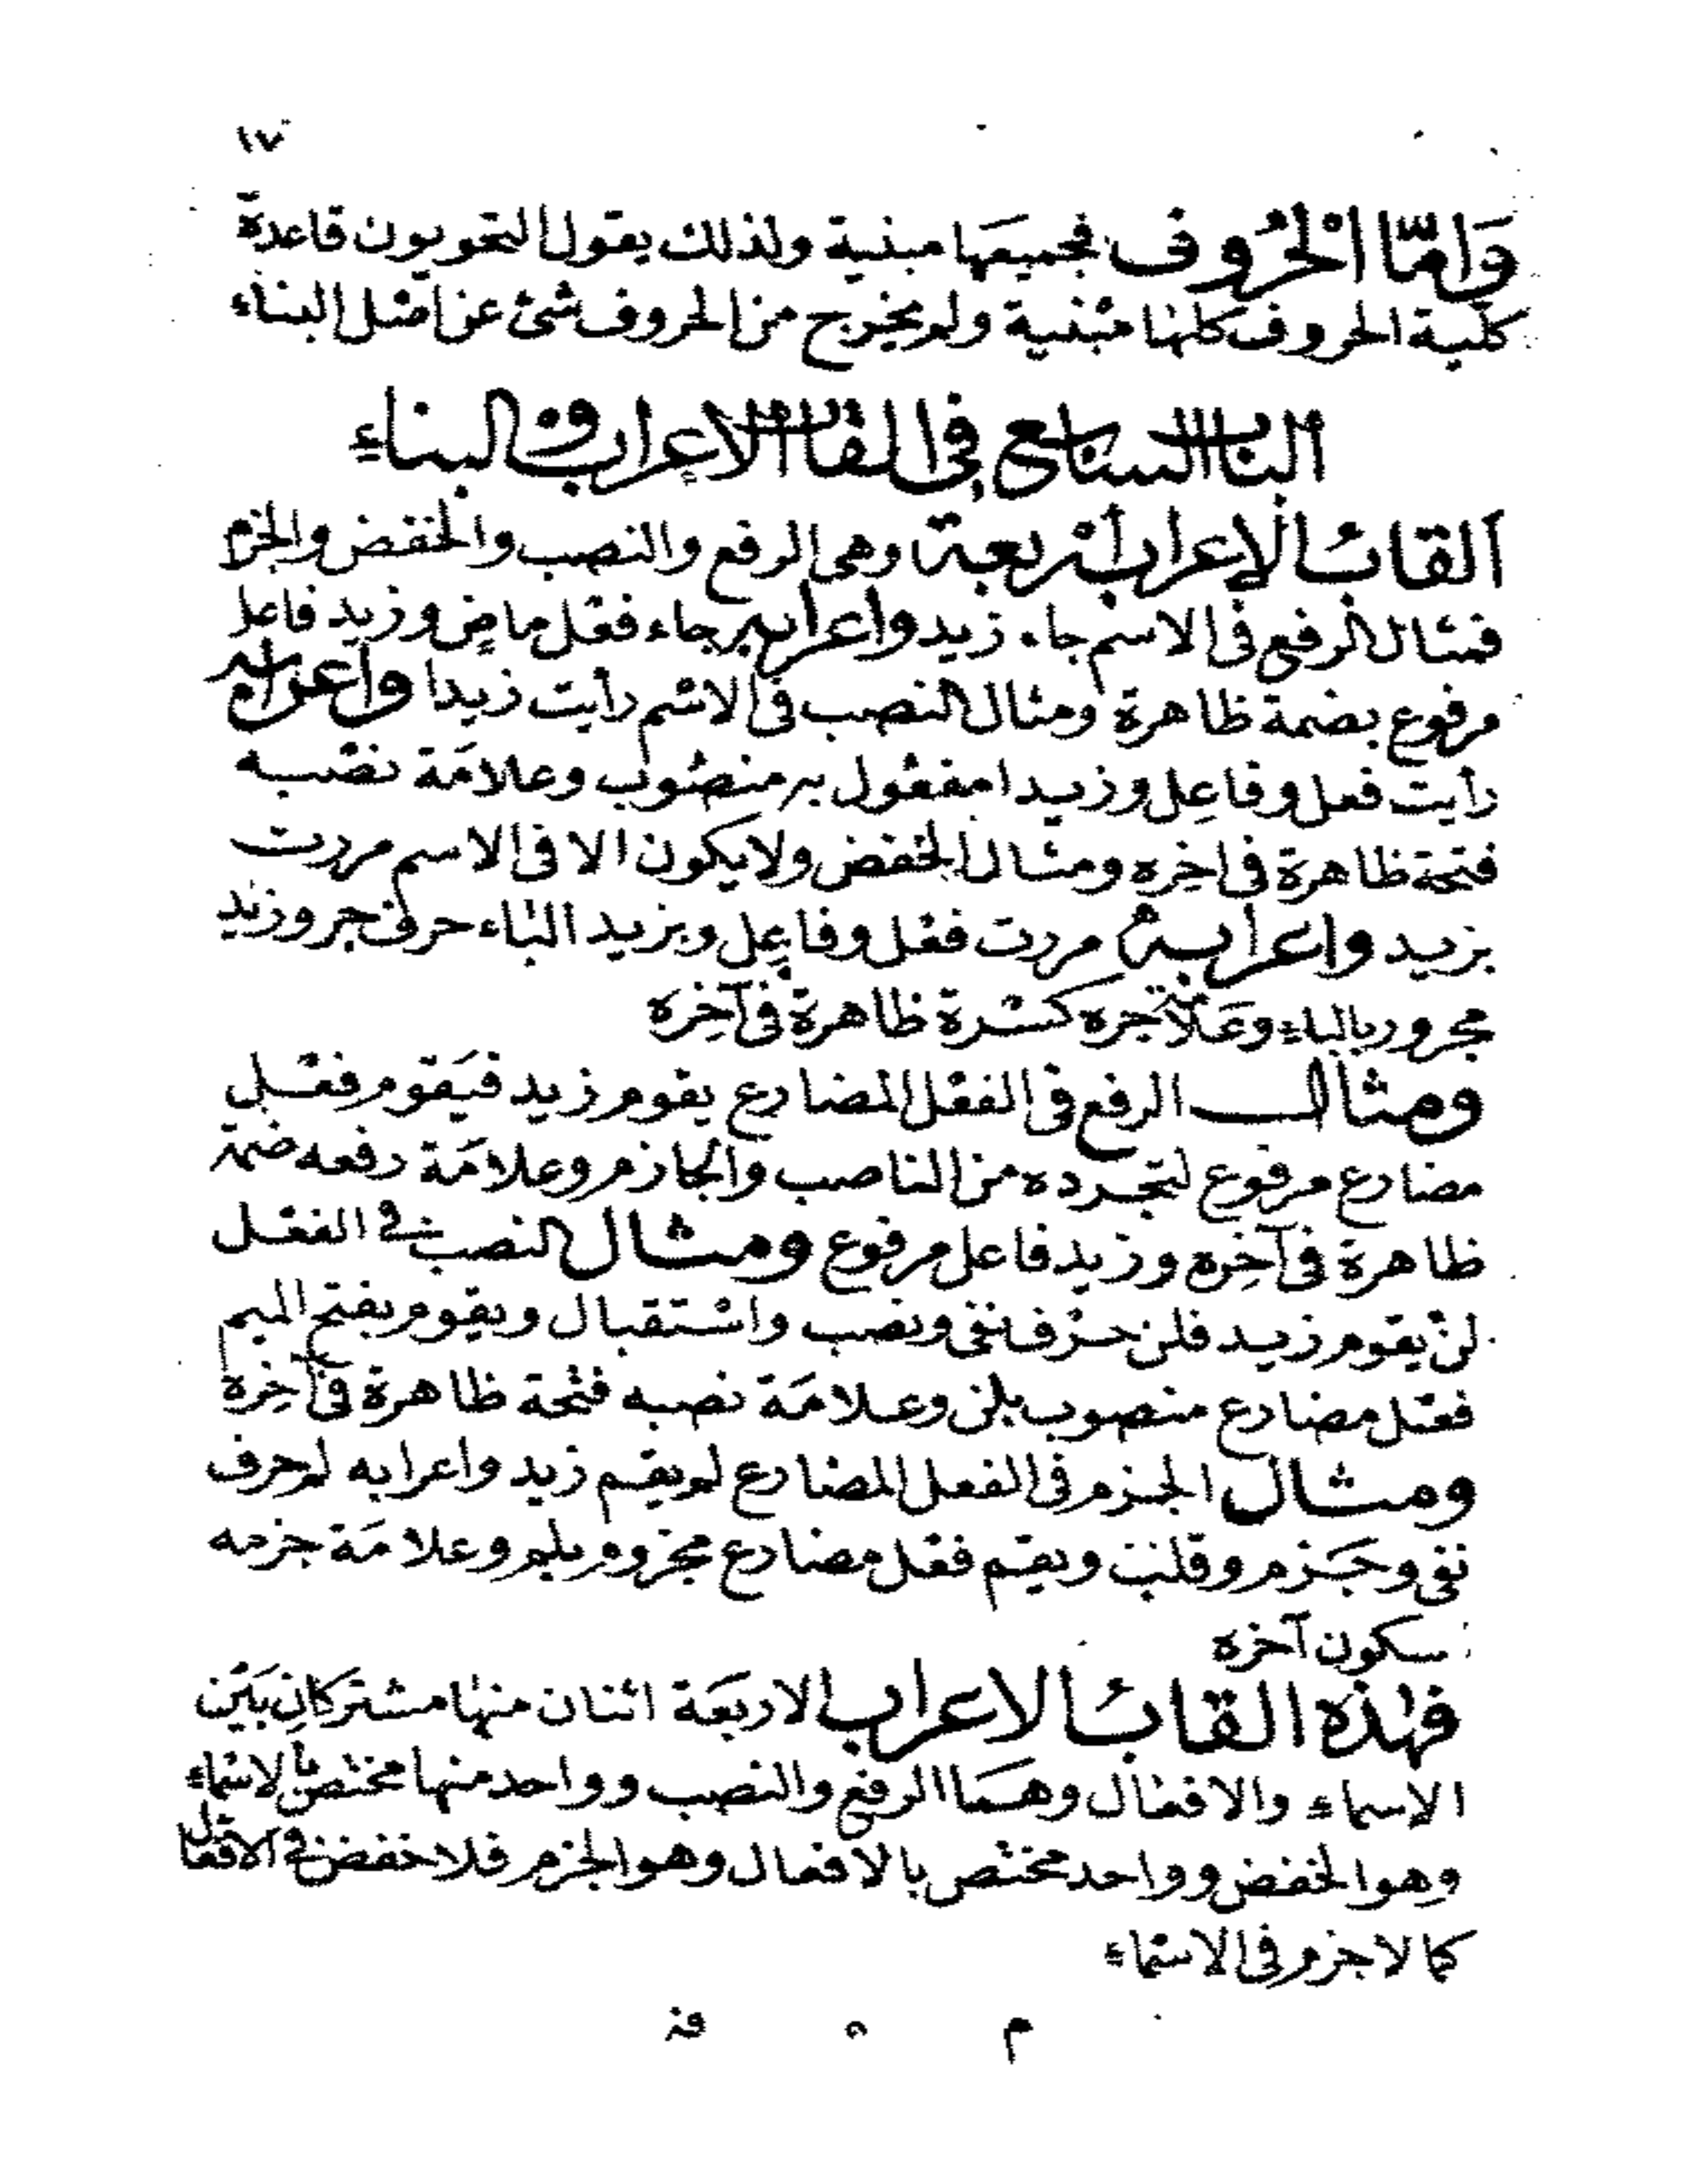 ١٧
وَامّا الْحُرُوف فجميعَها مبنية ولذلك يقول النحويون قاعدة
كلية الحروف كلها مبنية ولم يخرج من الحروف شئ عن اصل البناء
الباب السابع فى القاب الاعراب والبناء
القابُ الاعراب أربعة وهى الرفع والنصب والخفض والجزم
فمثال الرفع فى الاسم جاء زيد واعرابه جاء فعل ماضٍ وزيد فاعل
مرفوع بضمة ظاهرة ومثال النصب فى الاسم رأيت زيدا واعرابه
رأيت فعل وفاعِل وزيدا مفعول به منصوب وعلامَة نصبه
فتحة ظاهرة فى اخِره ومثال الخفض ولا يكون الا فى الاسم مررت
بزيد واعرابهُ مررت فعل وفاعِل وبزيد الباء حرف جر وزيد
مجرور بالباءِ وعَلامة جره كسرة ظاهرة فى آخِره
ومثال الرفع فى الفعل المضارع يقوم زيد فيَقوم فعل
مضارع مرفوع لتجرده من الناصب والجازم وعلامَة رفعه ضمة
ظاهرة فى آخِره وزيد فاعل مرفوع ومثال النصب فى الفعل
لنْ يقوم زيد فلن حرْف نفى ونصب واسْتقبال ويقوم بفتح الميم
فعل مضارع منصوب بلن وعلامَة نصبه فتحة ظاهرة فى آخِره
ومثال الجزم فى الفعل المضارع لم يقم زيد واعرابه لم حرف
نفى وجَزم وقلب ويقم فعل مضارع مجزوم بلم وعلامَة جزمه
سكون آخره
فهٰذه القابُ الاعراب الاربَعَة اثنان منها مشتركانِ بَيْن
الاسماء والافعال وهمَا الرفع والنصب وواحد منها مختص بالاسْماء
وهو الخفض وواحد مختص بالافعال وهو الجزم فلا خفض فى الافعال
كما لا جزم فى الاسْماء
م ٥ فة